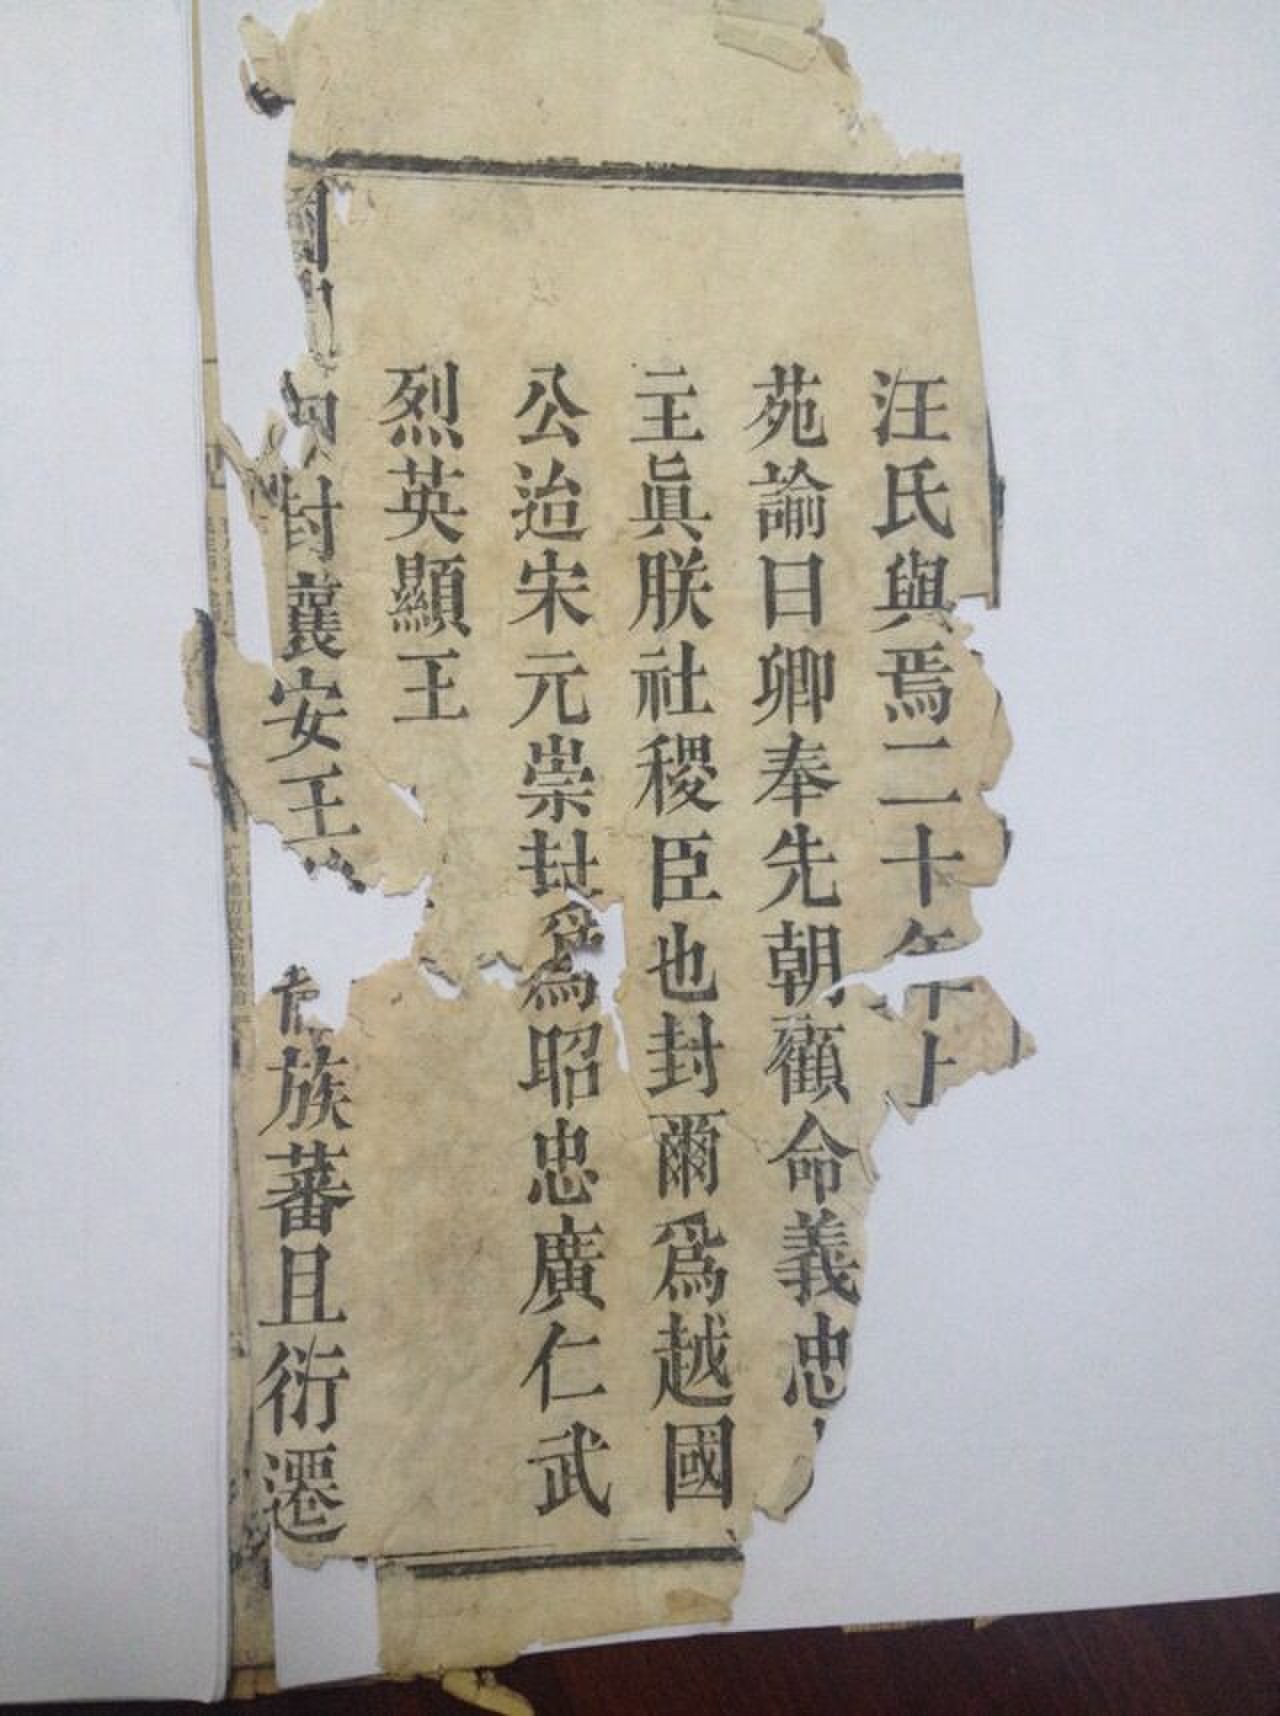 汪氏與焉二十年上
苑諭曰卿奉先朝顧命義忠
主眞朕社稷臣也封爾爲越國
公迨宋元崇封爲昭忠廣仁武
烈英顯王
封襄安王
族蕃且衍遷